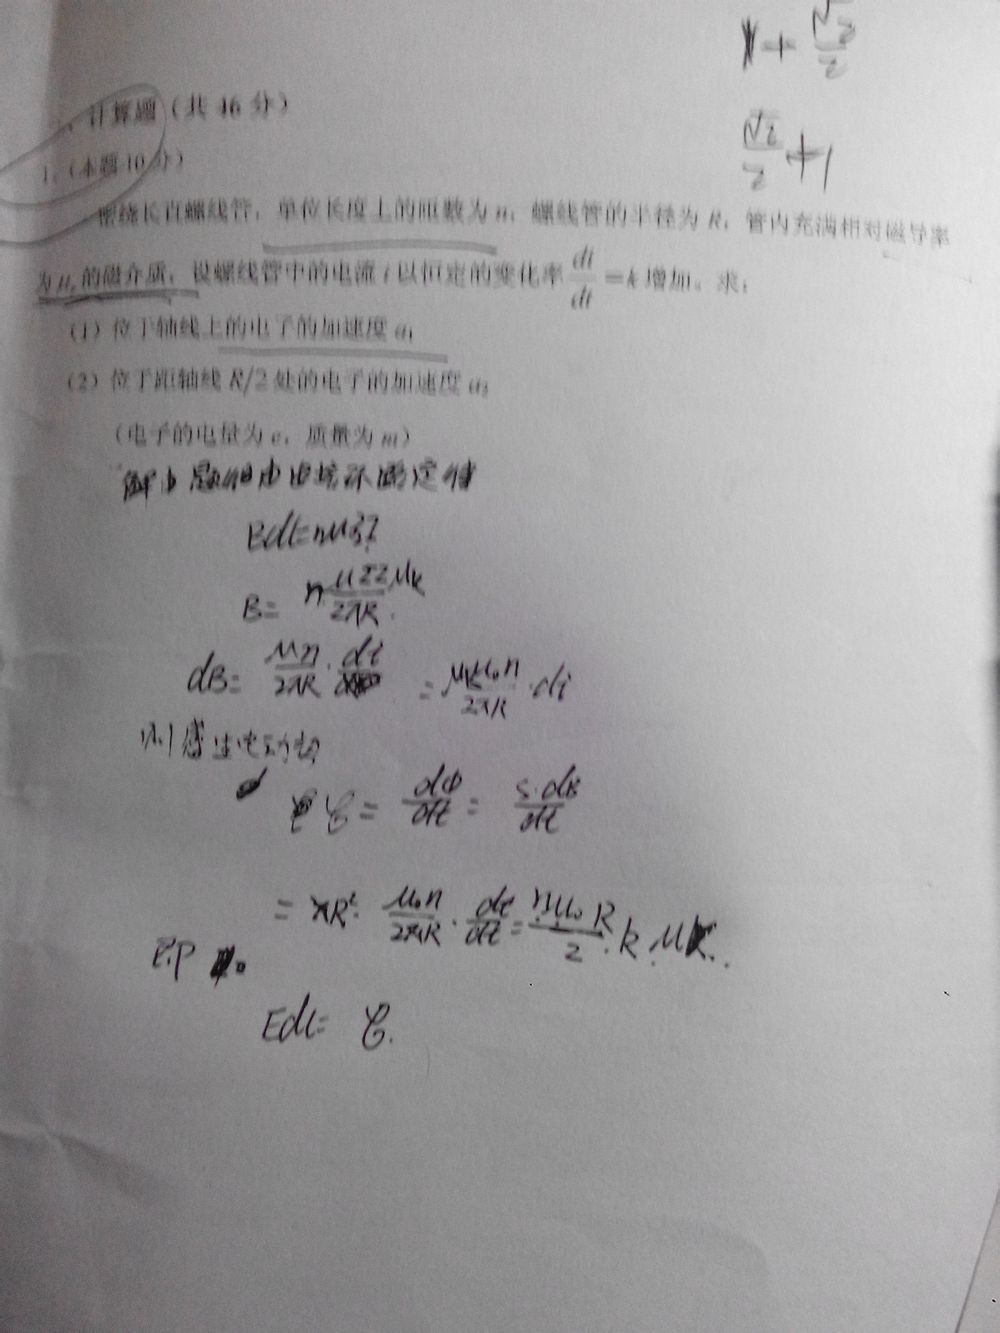 x + √2/2
√2/2 + 1
、计算题（共 46 分）
1、（本题 10 分）
密绕长直螺线管，单位长度上的匝数为 n，螺线管的半径为 R，管内充满相对磁导率
为 μr 的磁介质，设螺线管中的电流 i 以恒定的变化率 di/dt = k 增加。求：
（1）位于轴线上的电子的加速度 a₁
（2）位于距轴线 R/2 处的电子的加速度 a₂
（电子的电量为 e，质量为 m）
解由题
定律
B=
dB= μn/2πR · di = μ₀n/2πR · di
则感生电动势
ℰ = dΦ/dt = S·dB/dt
= πR² · μ₀n/2πR · di/dt = nμ₀R/2 · k
Edl= ℰ.